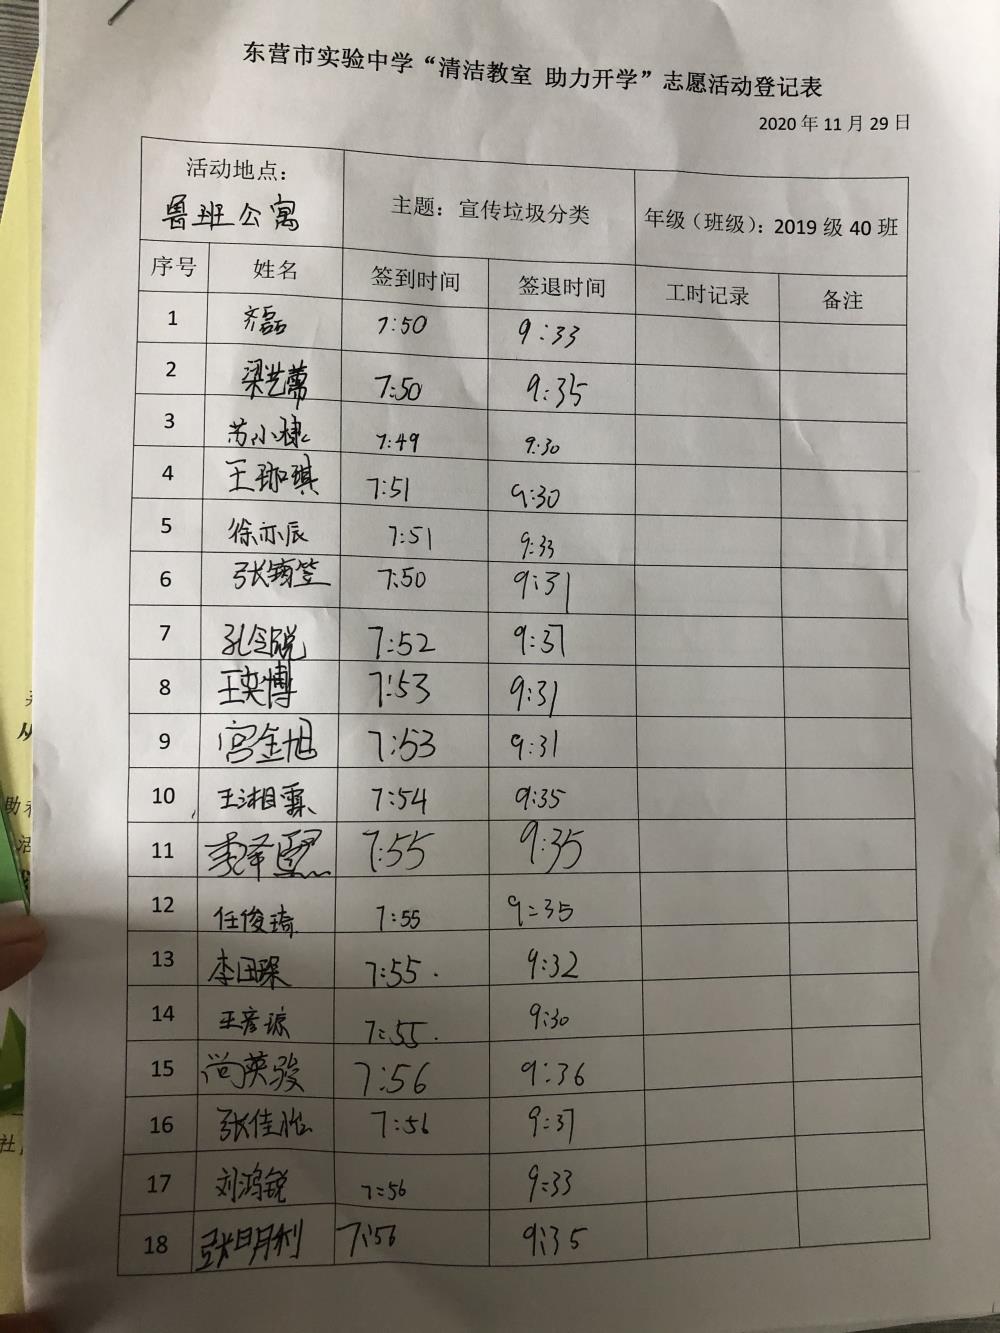 东营市实验中学“清洁教室 助力开学”志愿活动登记表
2020 年 11 月 29 日
活动地点：
鲁班公寓
主题：宣传垃圾分类
年级（班级）：2019 级 40 班
序号 姓名 签到时间 签退时间 工时记录 备注
1 齐磊 7:50 9:33
2 梁艺蕾 7:50 9:35
3 苏小棣 7:49 9:30
4 王珈琪 7:51 9:30
5 徐亦辰 7:51 9:33
6 7:50 9:31
7 孔令悦 7:52 9:37
8 王奕博 7:53 9:31
9 宫金旭 7:53 9:31
10 王湘霖 7:54 9:35
11 7:55 9:35
12 任俊琦 7:55 9:35
13 李田琛 7:55 9:32
14 王彦琼 7:55 9:30
15 尚英骏 7:56 9:36
16 张佳怡 7:56 9:37
17 刘鸿锐 7:56 9:33
18 张明利 7:56 9:35